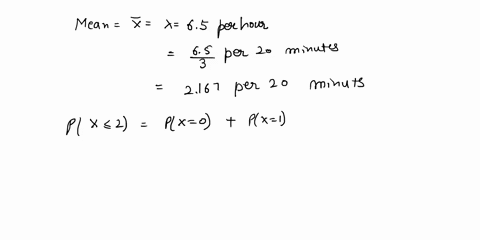 Mean = x̄ = λ = 6.5 per hour
= 6.5/3 per 20 minutes
= 2.167 per 20 minuts
P( X ≤ 2) = P(X=0) + P(X=1)